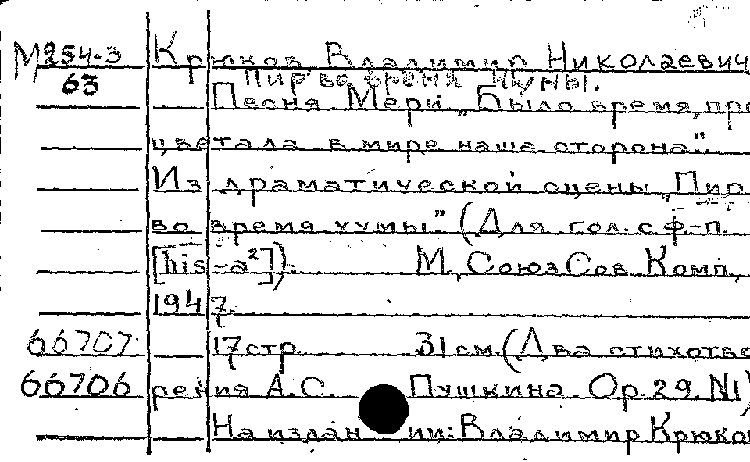 М 254-3
63
Крюков Владимир Николаевич
Пир во время чумы.
Песня Мери „Было время, про
цветала в мире наша сторона"
Из драматической сцены „Пир
во время чумы" (Для гол. с ф-п.
[his-a²]). М, Союз Сов. Комп.,
1947.
66707 17 стр. 31 см. (Два стихотво
66706 рения А.С. Пушкина. Ор. 29. N1)
На издании: Владимир Крюков